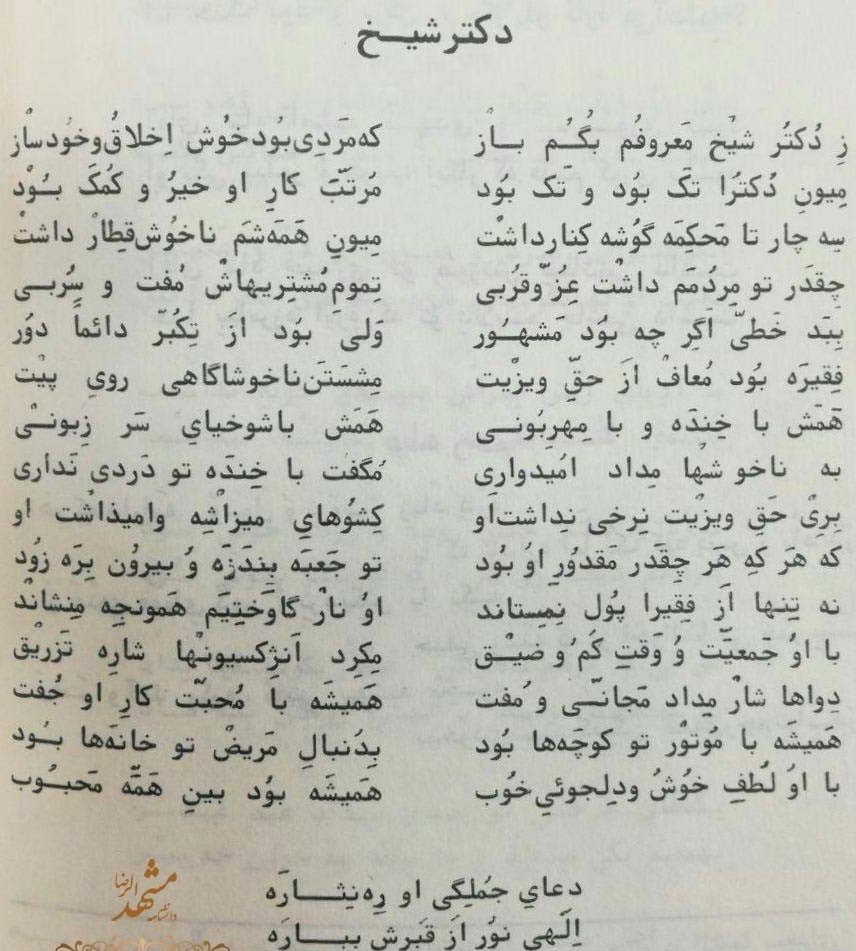 دکتر شیخ
زِ دُکتُر شیْخ مَعروفُم بگُم باز که مَردِی بُود خُوش اِخلاقُ و خُود ساز
مِیونِ دُکتُرا تَک بُود و تَک بُود مُرتَّب کارِ او خیرُ و کُمَک بُود
سِه چار تا مَحکِمَه گوُشه کِنار داشت مِیونِ هَمَه شَم ناخُوش قِطار داشت
چِقدَر تو مِردُمَم داشْت عِزّ و قُربی تِمومِ مُشتِریهاش مُفت و سُربی
بِبَد خَطیّ اَگِر چه بوُد مَشهُور وَلی بوُد اَز تِکُبّر دائماً دوُر
فِقیرَه بوُد مُعاف اَز حَقِّ ویزْیت مِشِستَن ناخوشا گاهی رویِ پیْت
هَمَش با خِندَه و با مِهرِبُونی هَمَش با شوخیایِ سَر زِبونی
به ناخوشها مِداد امُیدواری مُگفت با خِندَه تو دَردی نَداری
بِریْ حَقِ ویزْیت نِرخی نِداشت او کِشُوهایِ میزاشِه وامیذاشْت او
که هَر کِه هَر چِقَدر مَقدُورِ اوُ بُود تو جَعبَه بِندَزَه وُ بیروُن بِرَه زوُد
نه تِنها اَز فِقیرا پوُل نِمِستاند اوُ نارْ گاوَختِیَم هَمونجِه مِنشاند
با اوُ جَمعیَّت وُ وَقتِ کَمُ و ضیق مِکِرد اَنژِکسیونها شارِه تَزریق
دِواها شارْ مِداد مَجانّی و مُفت هَمیشَه با مُحبّت کارِ او جُفت
هَمیشَه با مُوتوُر تو کوچَه‌ها بُود بِدُنبالِ مَریضْ تو خانَه‌ها بُود
با اوُ لُطفِ خُوشُ و دِلجوئیِ خُوب هَمیشَه بوُد بینِ هَمَّه مَحبُوب
دعایِ جُملِگی او رِه نِثارَه
اِلَهی نوُر اَز قَبرِش بِبارَه
مشهد الرضا
دانشنامه